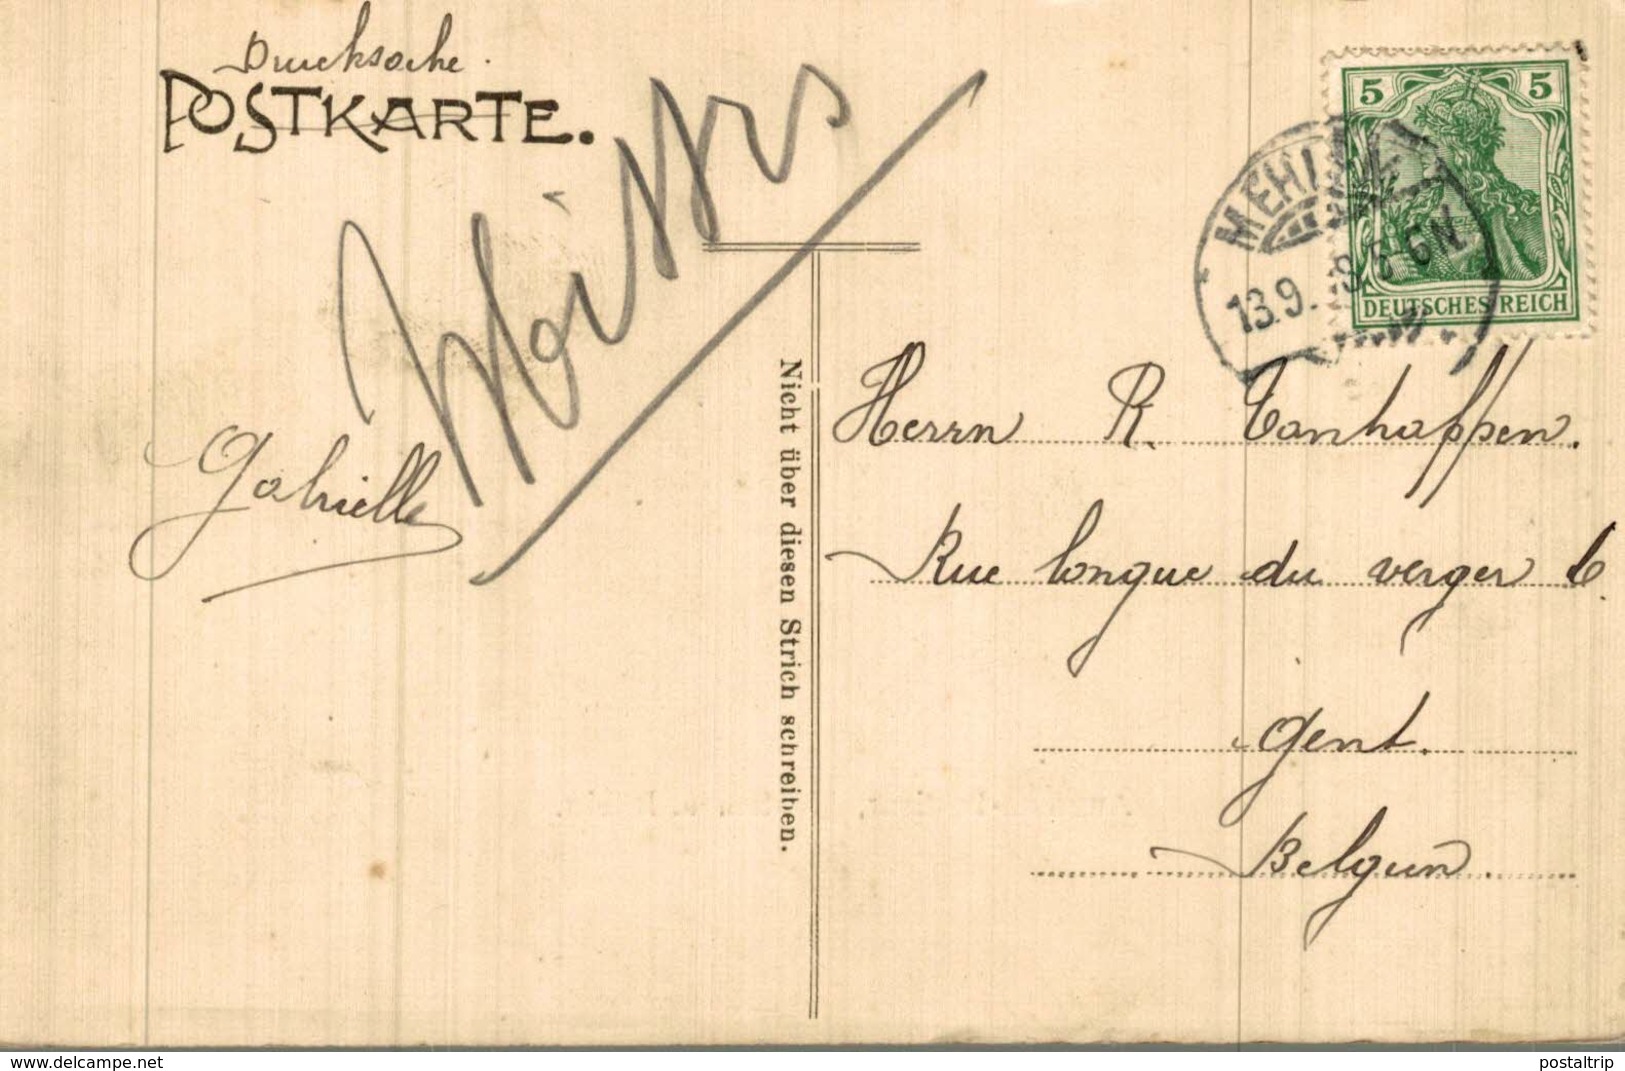 Drucksache.
POSTKARTE.
5 5
DEUTSCHES REICH
13.9. 5-6N
Gabrielle
Nicht über diesen Strich schreiben.
Herrn R. Vanhaffpen.
Rue longue du verger 6.
Gent.
Belgien.
www.delcampe.net
postaltrip